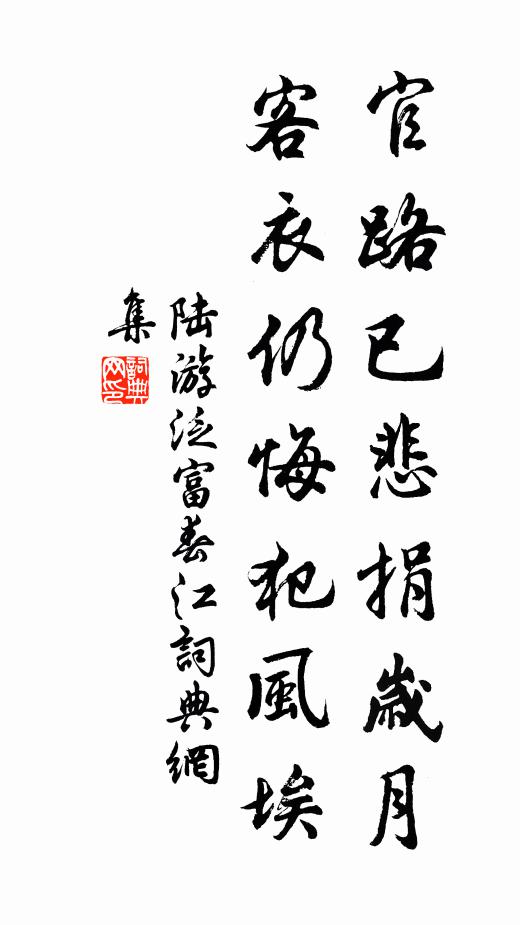 官路已悲捐歲月
客衣仍悔犯風埃
陸游泛富春江詞典網
集
詞典网印